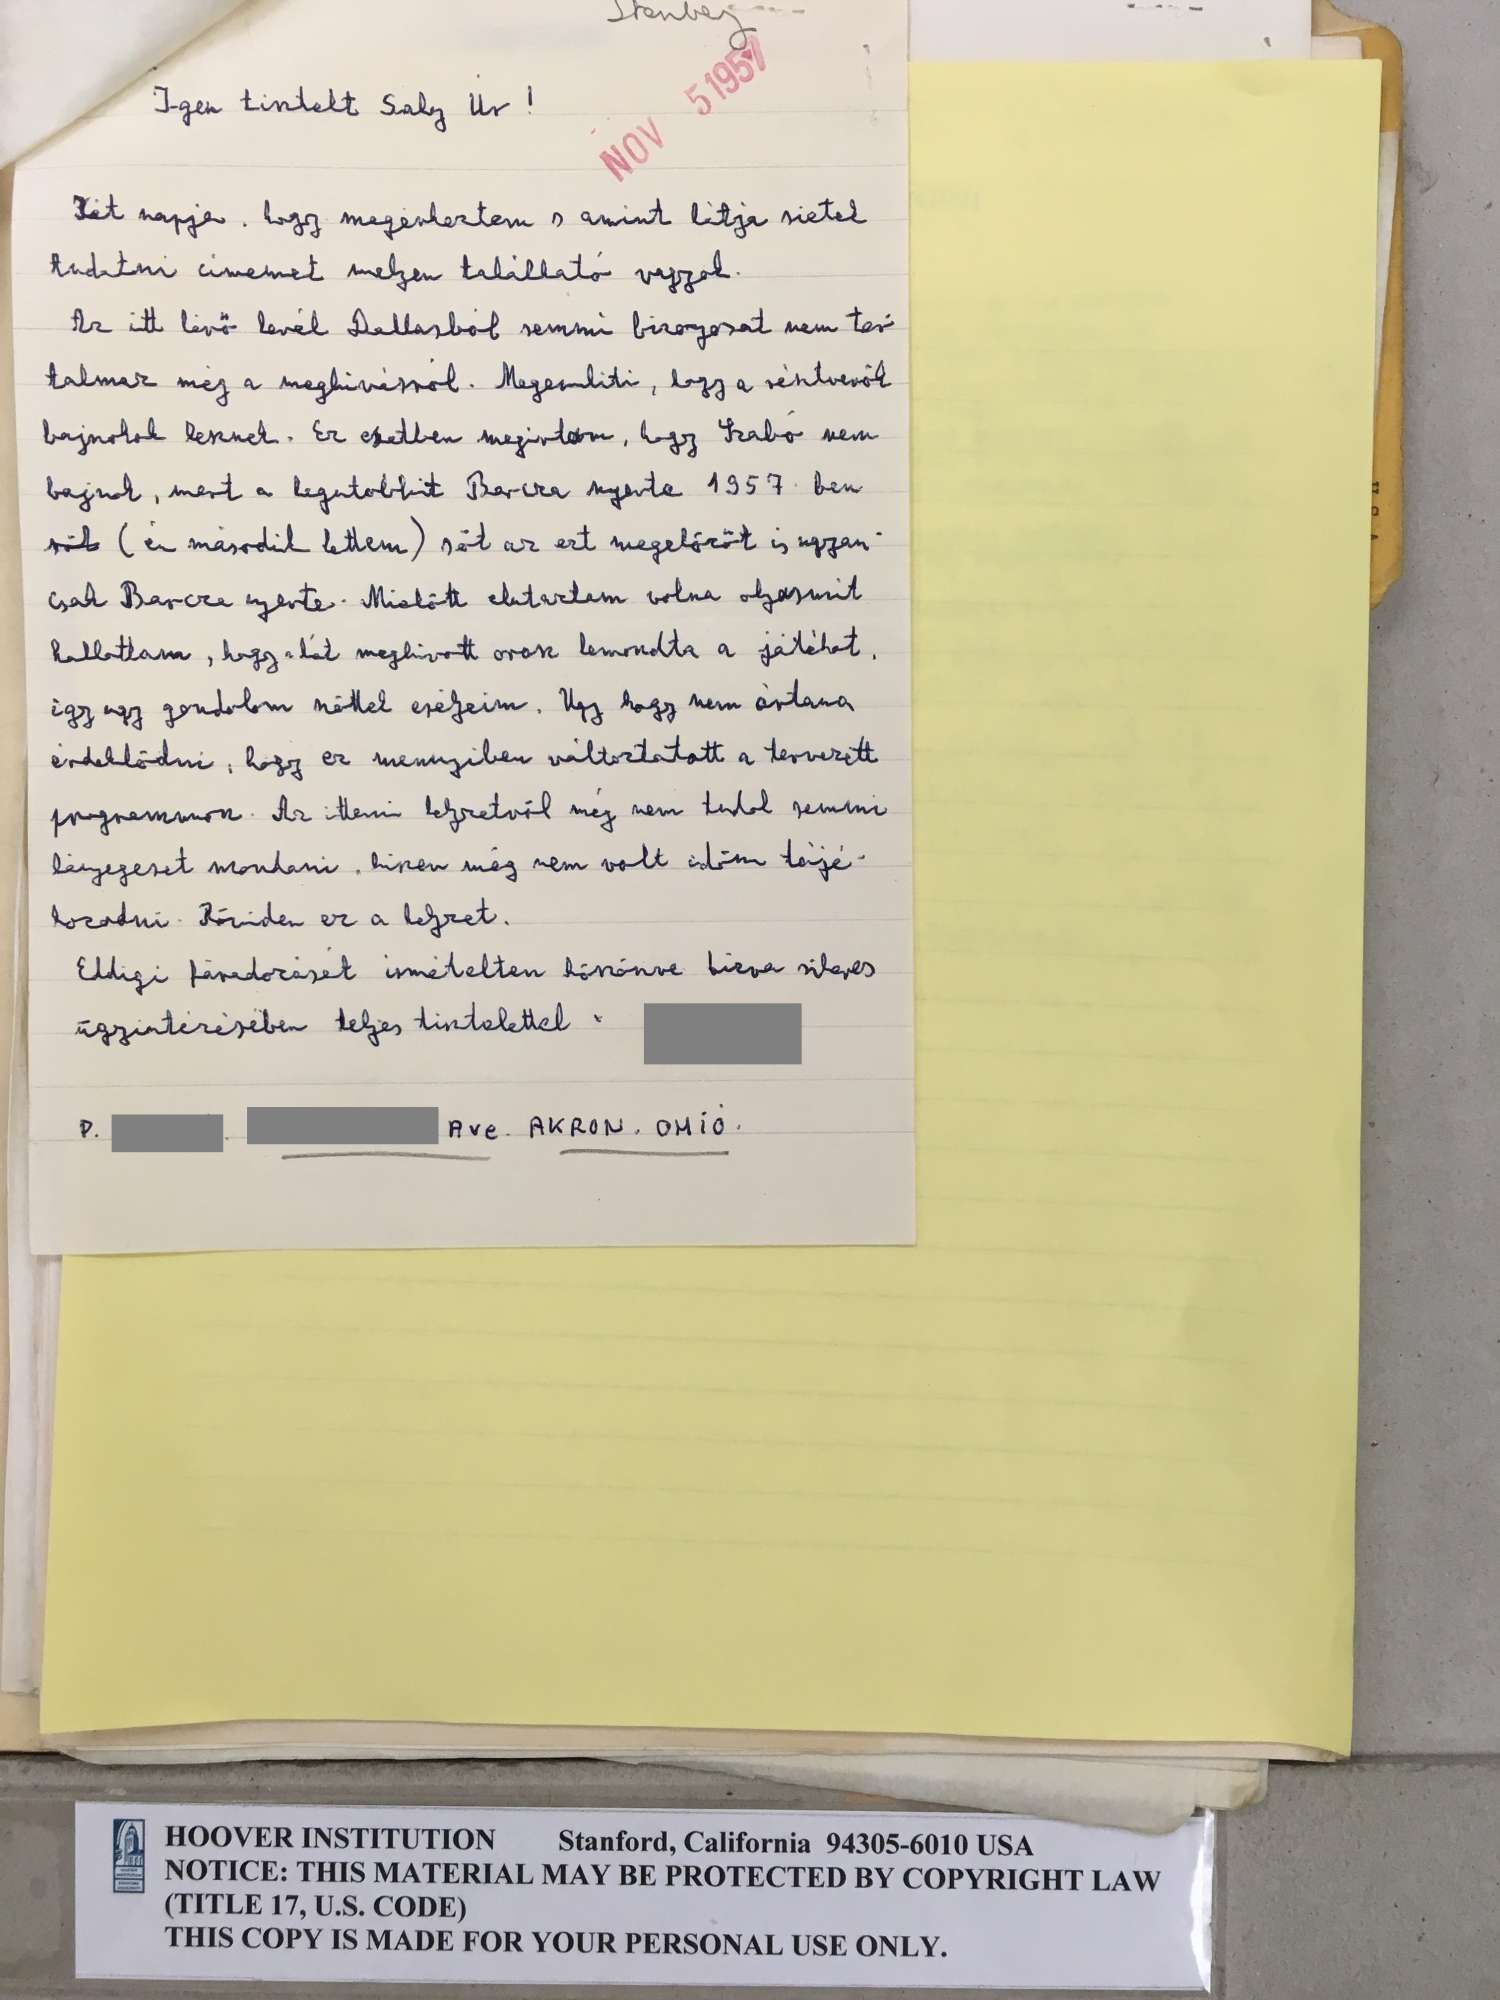 NOV 5 1957
I-gen tisztelt Salz Úr!
Két napja, hogy megérkeztem s amint látja sietek
tudatni címemet melyen található vagyok.
Az itt lévő levél Dallasból semmi bizonyosat nem tar-
talmaz még a meghívásról. Megemliti, hogy a résztvevők
bajnokok lesznek. Ez esetben megirtam, hogy Szabó nem
bajnok, mert a legutobbit Barcza nyerte 1957 ben
(én második lettem) sőt az ezt megelőzőt is ugyan-
csak Barcza nyerte. Mielőtt elutaztam volna olyasmit
hallottam, hogy a két meghívott orosz lemondta a játékot,
igy ugy gondolom nőttek esélyeim. Ugy hogy nem ártana
érdeklődni, hogy ez mennyiben változtatott a tervezett
programmon. Az itteni helyzetről még nem tudok semmi
lényegeset mondani, hiszen még nem volt időm tájé-
kozodni. Röviden ez a helyzet.
Eddigi fáradozását ismételten köszönve bizva sikeres
ügyintézésében teljes tisztelettel
P. Ave. AKRON. OHIÓ.
HOOVER INSTITUTION Stanford, California 94305-6010 USA
NOTICE: THIS MATERIAL MAY BE PROTECTED BY COPYRIGHT LAW
(TITLE 17, U.S. CODE)
THIS COPY IS MADE FOR YOUR PERSONAL USE ONLY.